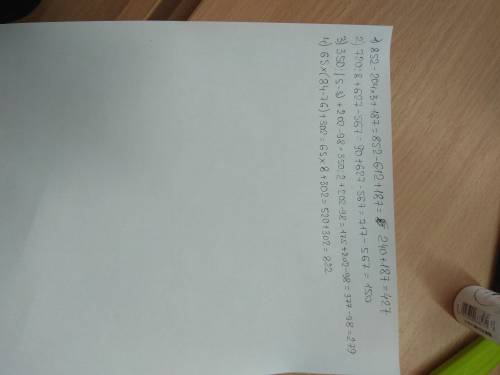 1) 852-204×3+187=852-612+187= 240+187=427
2) 720:8+627-567=90+627-567=717-567=150
3) 350:(5-3)+202-98=350:2+202-98=175+202-98=377-98=279
4) 65×(84-76)+302=65×8+302=520+302=822